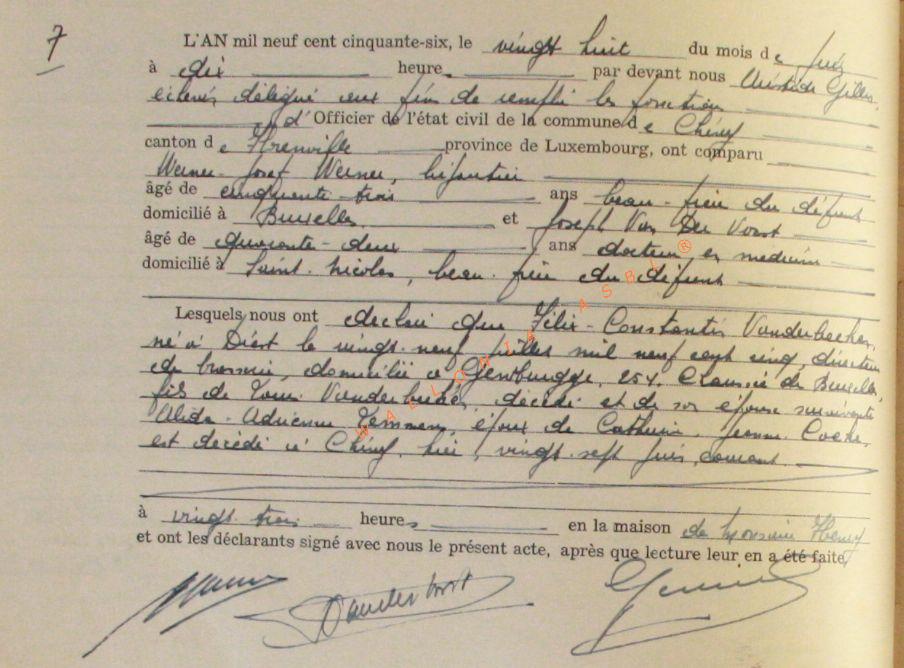 7
L'AN mil neuf cent cinquante-six, le vingt huit du mois de juin
à dix heures par devant nous Gilles
échevin délégué aux fins de remplir les fonctions
d' Officier de l'état civil de la commune de Chiny
canton de Florenville province de Luxembourg, ont comparu
Werner Josef Werner, bijoutier
âgé de cinquante-trois ans beau-frère du défunt
domicilié à Bruxelles et Joseph Van Der Vorst
âgé de quarante-deux ans docteur en médecine
domicilié à Saint-Nicolas, beau-frère du défunt
Lesquels nous ont déclaré que Félix-Constantin Vanderbecken,
né à Diest le vingt-neuf juillet mil neuf cent cinq, directeur
de brasserie, domicilié à 254, Chaussée de Bruxelles,
fils de Louis Vanderbecken, décédé et de son épouse survivante
Alida-Adrienne Temmerman, époux de Catherine-Jeanne
est décédé à Chiny, hier, vingt-sept juin courant
à vingt-trois heures en la maison de Monsieur Henry
et ont les déclarants signé avec nous le présent acte, après que lecture leur en a été faite,
Vandervorst
WALLONIA ASBL ®